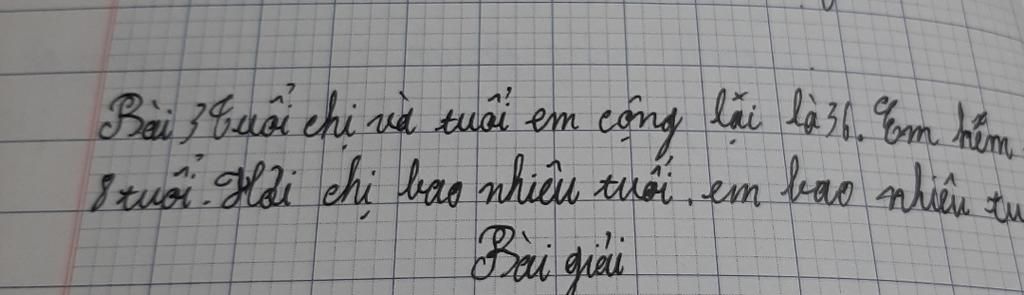 Bài 3 Tuổi chị và tuổi em cộng lại là 36. Em kém
8 tuổi. Hỏi chị bao nhiêu tuổi, em bao nhiêu tu
Bài giải